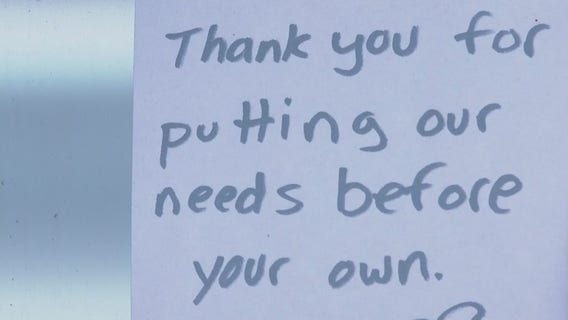 Thank you for
putting our
needs before
your own.